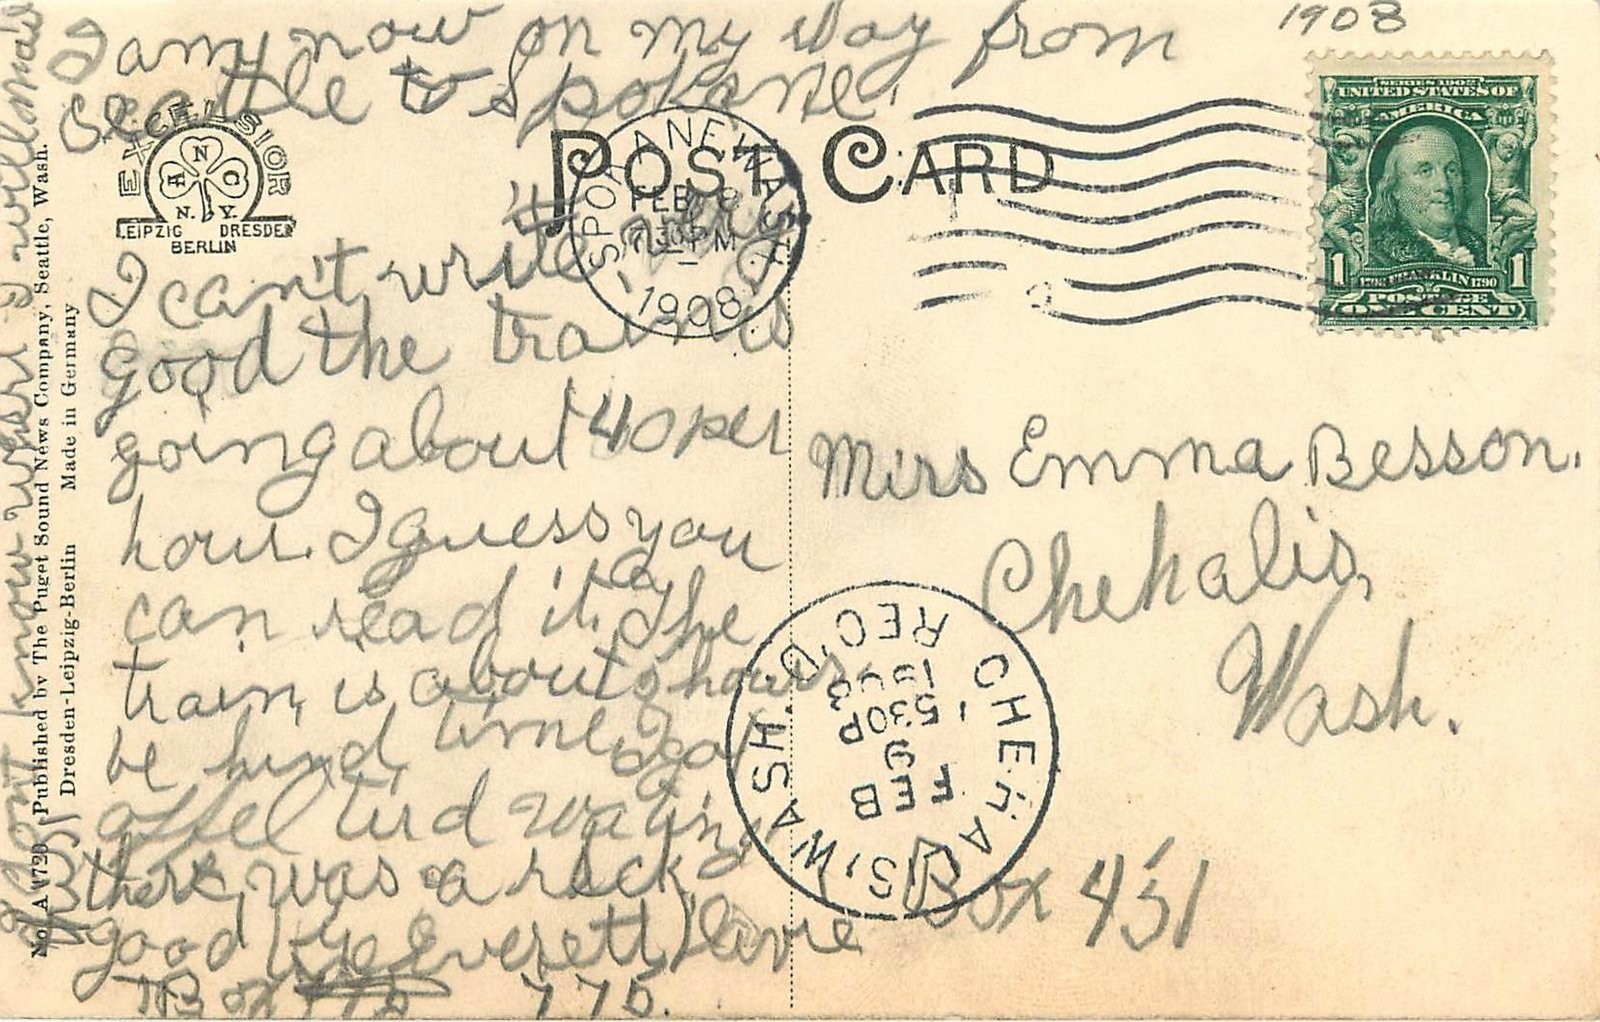 1908
I am now on my way from
Seattle to Spokane.
EXCELSIOR
A N C
N. Y.
LEIPZIG DRESDEN
BERLIN
POST CARD
SPOKANE, WASH.
FEB 8
7 30 PM
1908
SERIES 1902
UNITED STATES OF
AMERICA
1 FRANKLIN 1790 1
POSTAGE
ONE CENT
I can't write it very
good the train is
going about 40 per
hour. I guess you
can read it. The
train is about 9 hours
be hind time I
tird wating
there was a reck
good bye Everett
Box 775.
I dont know where I will
No. A 4720 Published by The Puget Sound News Company, Seattle, Wash.
Dresden-Leipzig-Berlin Made in Germany
Miss Emma Besson.
Chehalis,
Wash.
Box 451
CHEHALIS, WASH.
REC'D.
FEB
9
530P
1908